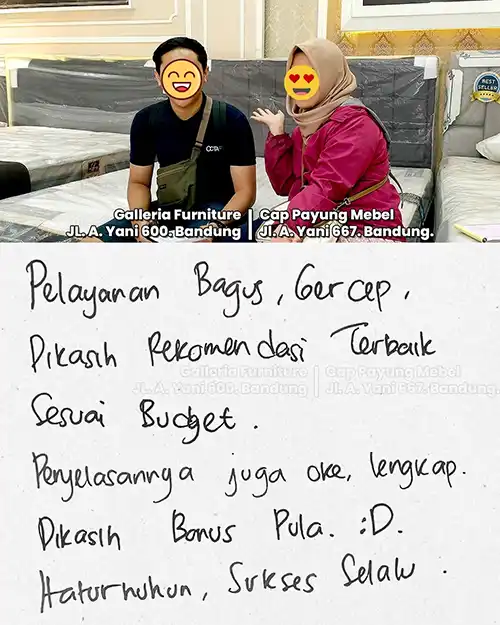 BEST SELLER
OCTA
Galleria Furniture | Cap Payung Mebel
JL. A. Yani 600. Bandung | Jl. A. Yani 667. Bandung.
Pelayanan Bagus, Gercep,
Dikasih Rekomendasi Terbaik
Galleria Furniture | Cap Payung Mebel
JL. A. Yani 600. Bandung | Jl. A. Yani 667. Bandung.
Sesuai Budget.
Penyelasannya juga oke, lengkap.
Dikasih Bonus Pula. :D.
Haturnuhun, Sukses Selalu.